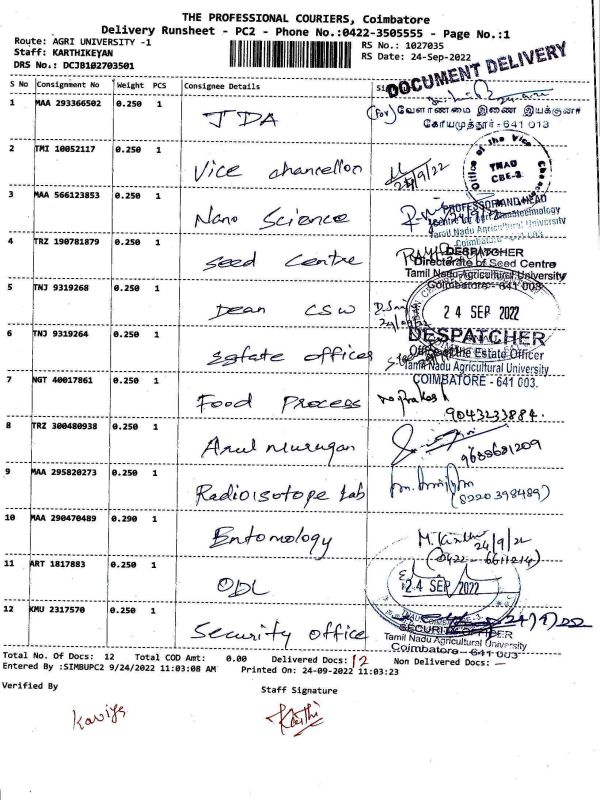 THE PROFESSIONAL COURIERS, Coimbatore
Delivery Runsheet - PC2 - Phone No.:0422-3505555 - Page No.:1
Route: AGRI UNIVERSITY -1
RS No.: 1027035
Staff: KARTHIKEYAN
RS Date: 24-Sep-2022
DRS No.: DCJB102703501
DOCUMENT DELIVERY
S No Consignment No Weight PCS Consignee Details
1 MAA 293366502 0.250 1 JDA
(For) வேளாண்மை இணை இயக்குனர்
கோயமுத்தூர் - 641 013
2 TMI 10052117 0.250 1 Vice chancellor 24/9/22
Office of the Vice
TNAU
CBE-3
3 MAA 566123853 0.250 1 Nano Science
PROFESSOR AND HEAD
Tamil Nadu Agricultural University
Coimbatore - 641 003
4 TRZ 190781879 0.250 1 Seed Centre
DESPATCHER
Directorate of Seed Centre
Tamil Nadu Agricultural University
Coimbatore - 641 003
5 TNJ 9319268 0.250 1 Dean CSW
24 SEP 2022
6 TNJ 9319264 0.250 1 Estate officer
DESPATCHER
Office of the Estate Officer
Tamil Nadu Agricultural University
COIMBATORE - 641 003.
7 NGT 40017861 0.250 1 Food Process
9043233884.
8 TRZ 300480938 0.250 1 Arul Murugan
9688681209
9 MAA 295820273 0.250 1 Radioisotope Lab
(8220398489)
10 MAA 290470489 0.290 1 Entomology
24/9/22
(0422-6611214)
11 ART 1817883 0.250 1 ODL
24 SEP 2022
12 KMU 2317570 0.250 1 Security office
SECURITY OFFICER
Tamil Nadu Agricultural University
Coimbatore - 641 003
Total No. Of Docs: 12 Total COD Amt: 0.00 Delivered Docs: 12 Non Delivered Docs: –
Entered By :SIMBUPC2 9/24/2022 11:03:08 AM Printed On: 24-09-2022 11:03:23
Verified By Staff Signature
Kaviya Karthi